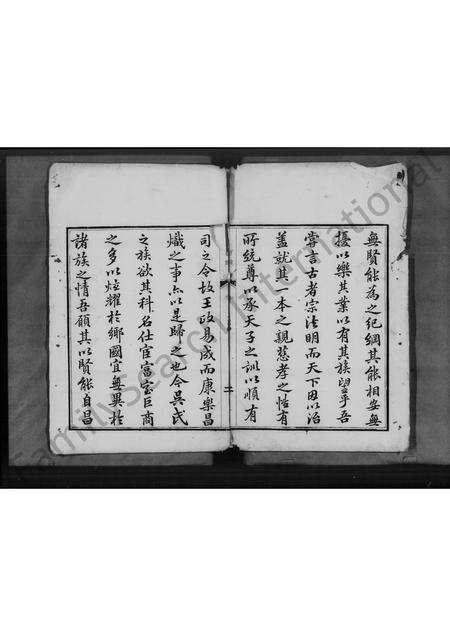 無賢能為之紀綱其能相安無
擾以樂其業以有其族望乎吾
嘗言古者宗法明而天下因以治
蓋就其一本之親慈孝之性有
所統尊以承天子之訓以順有
二
司之令故王政易成而康樂昌
熾之事亦以是歸之也今吳氏
之族欲其科名仕宦富室巨商
之多以炫耀於鄉國宜無異於
諸族之情吾願其以賢能自昌
FamilySearch International